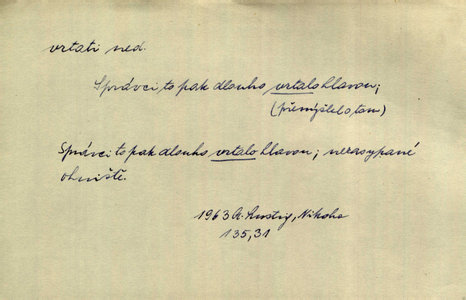 vrtati ned.
Správci to pak dlouho vrtalo hlavou;
(přemýšlel o tom)
Správci to pak dlouho vrtalo hlavou; nezasypané
ohniště.
1963 A. Lustig, Nikoho
135,31